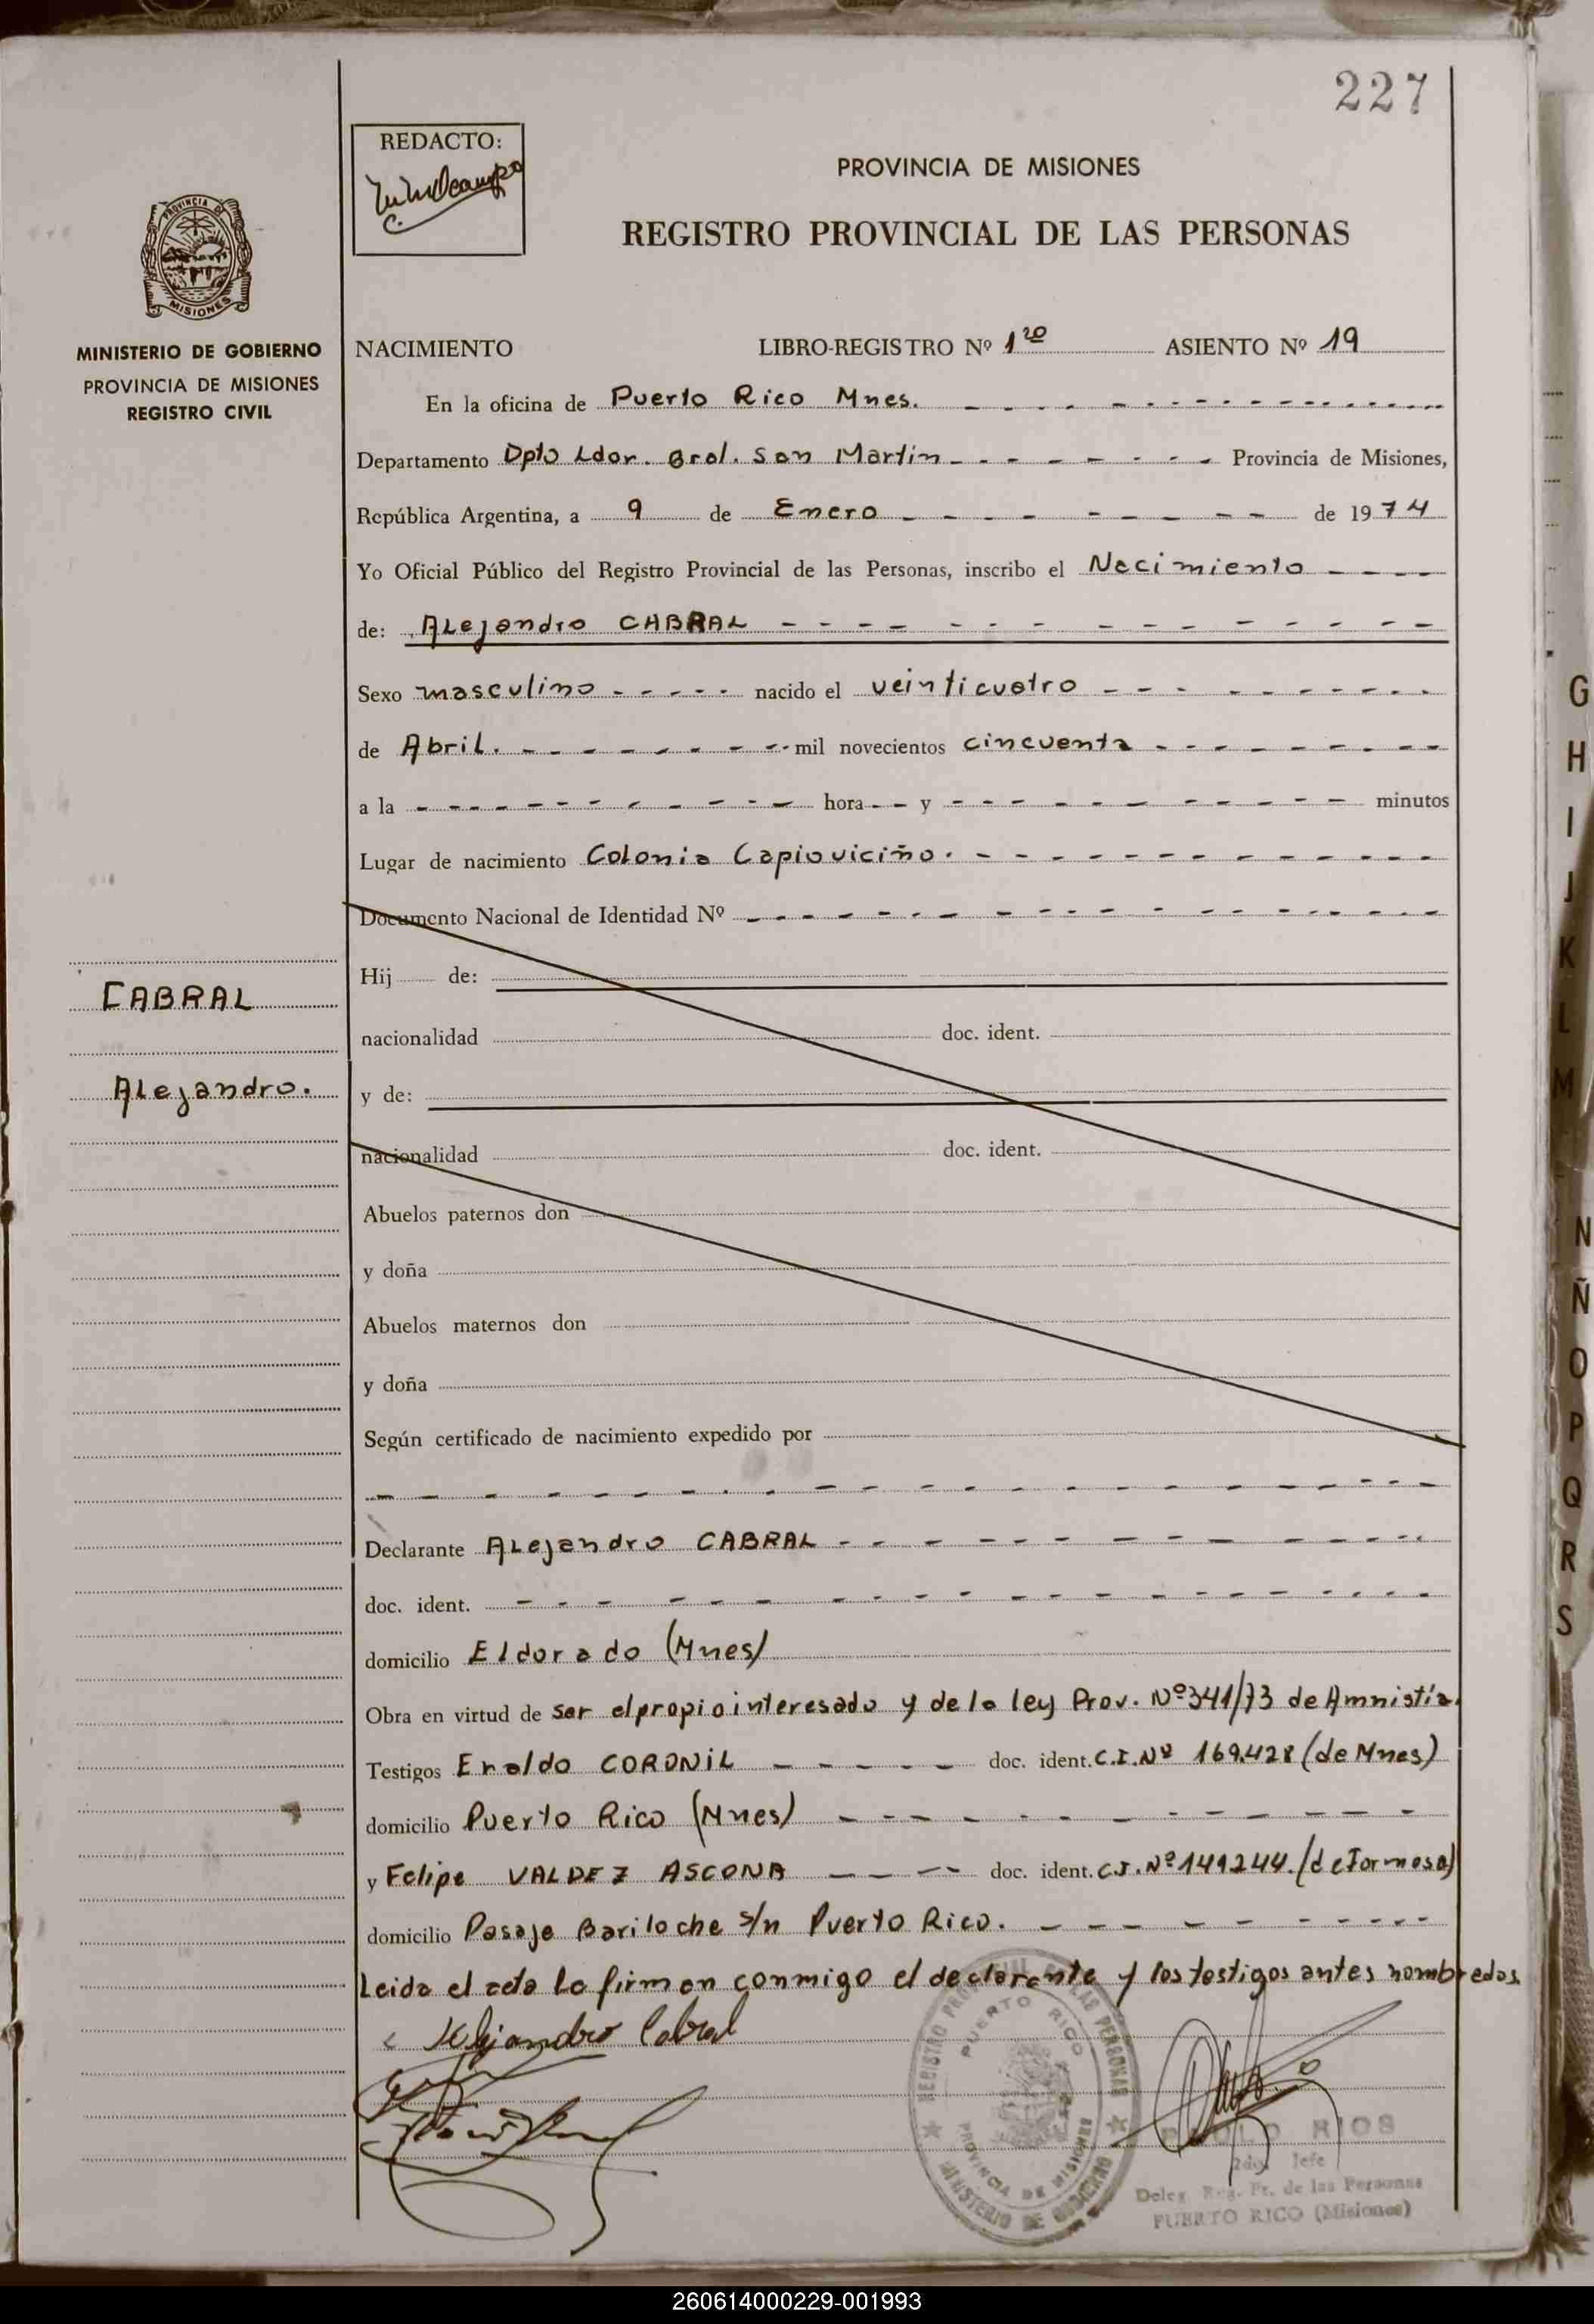 227
REDACTO:
PROVINCIA DE MISIONES
REGISTRO PROVINCIAL DE LAS PERSONAS
PROVINCIA DE
MISIONES
MINISTERIO DE GOBIERNO
PROVINCIA DE MISIONES
REGISTRO CIVIL
NACIMIENTO LIBRO-REGISTRO Nº 1ro ASIENTO Nº 19
En la oficina de Puerto Rico Mnes.
Departamento Dpto Ldor. Gral. San Martin Provincia de Misiones,
República Argentina, a 9 de Enero de 1974
Yo Oficial Público del Registro Provincial de las Personas, inscribo el Nacimiento
de: Alejandro CABRAL
Sexo masculino nacido el veinticuatro
de Abril. mil novecientos cincuenta
a la hora y minutos
Lugar de nacimiento Colonia Capioviciño.
Documento Nacional de Identidad Nº
Hij de:
nacionalidad doc. ident.
y de:
nacionalidad doc. ident.
Abuelos paternos don
y doña
Abuelos maternos don
y doña
Según certificado de nacimiento expedido por
CABRAL
Alejandro.
Declarante Alejandro CABRAL
doc. ident.
domicilio Eldorado (Mnes)
Obra en virtud de ser el propio interesado y de la ley Prov. Nº 341/73 de Amnistía.
Testigos Eraldo CORONIL doc. ident. C.I. Nº 169.428 (de Mnes)
domicilio Puerto Rico (Mnes)
y Felipe VALDEZ ASCONA doc. ident. C.I. Nº 141244. (de Formosa)
domicilio Pasaje Bariloche s/n Puerto Rico.
Leida el acta la firman conmigo el declarante y los testigos antes nombrados
Alejandro Cabral
PUERTO RICO
PROVINCIA DE MISIONES
MINISTERIO DE GOBIERNO
RIOS
2do. Jefe
Deleg. Reg. Pr. de las Personas
PUERTO RICO (Misiones)
G
H
I
J
K
L
M
N
Ñ
O
P
Q
R
S
260614000229-001993